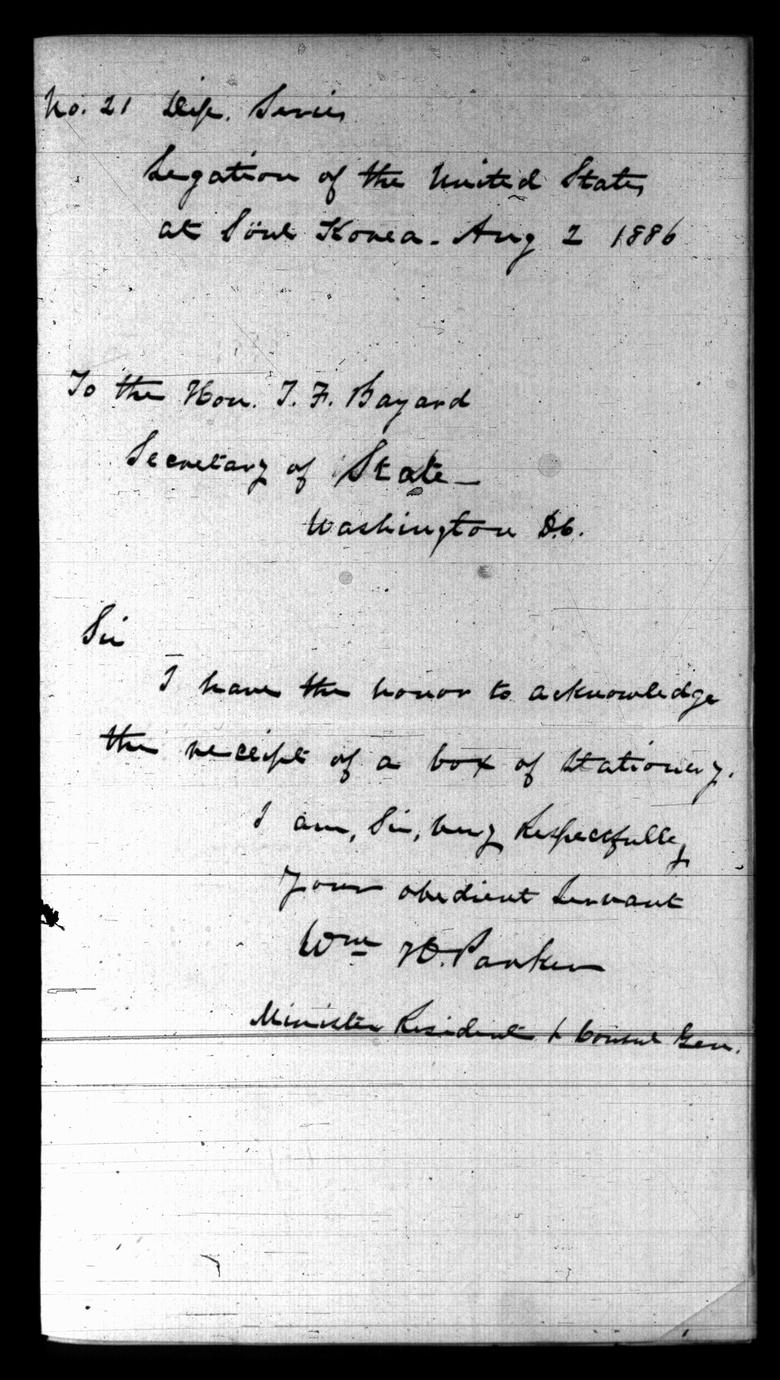 No. 21 Dip. Series
Legation of the United States
at Söul Korea - Aug 2 1886
To the Hon. T. F. Bayard
Secretary of State -
Washington D.C.
Sir
I have the honor to acknowledge
the receipt of a box of Stationery.
I am, Sir, very Respectfully
Your obedient Servant
Wm H. Parker
Minister Resident & Consul Gen.